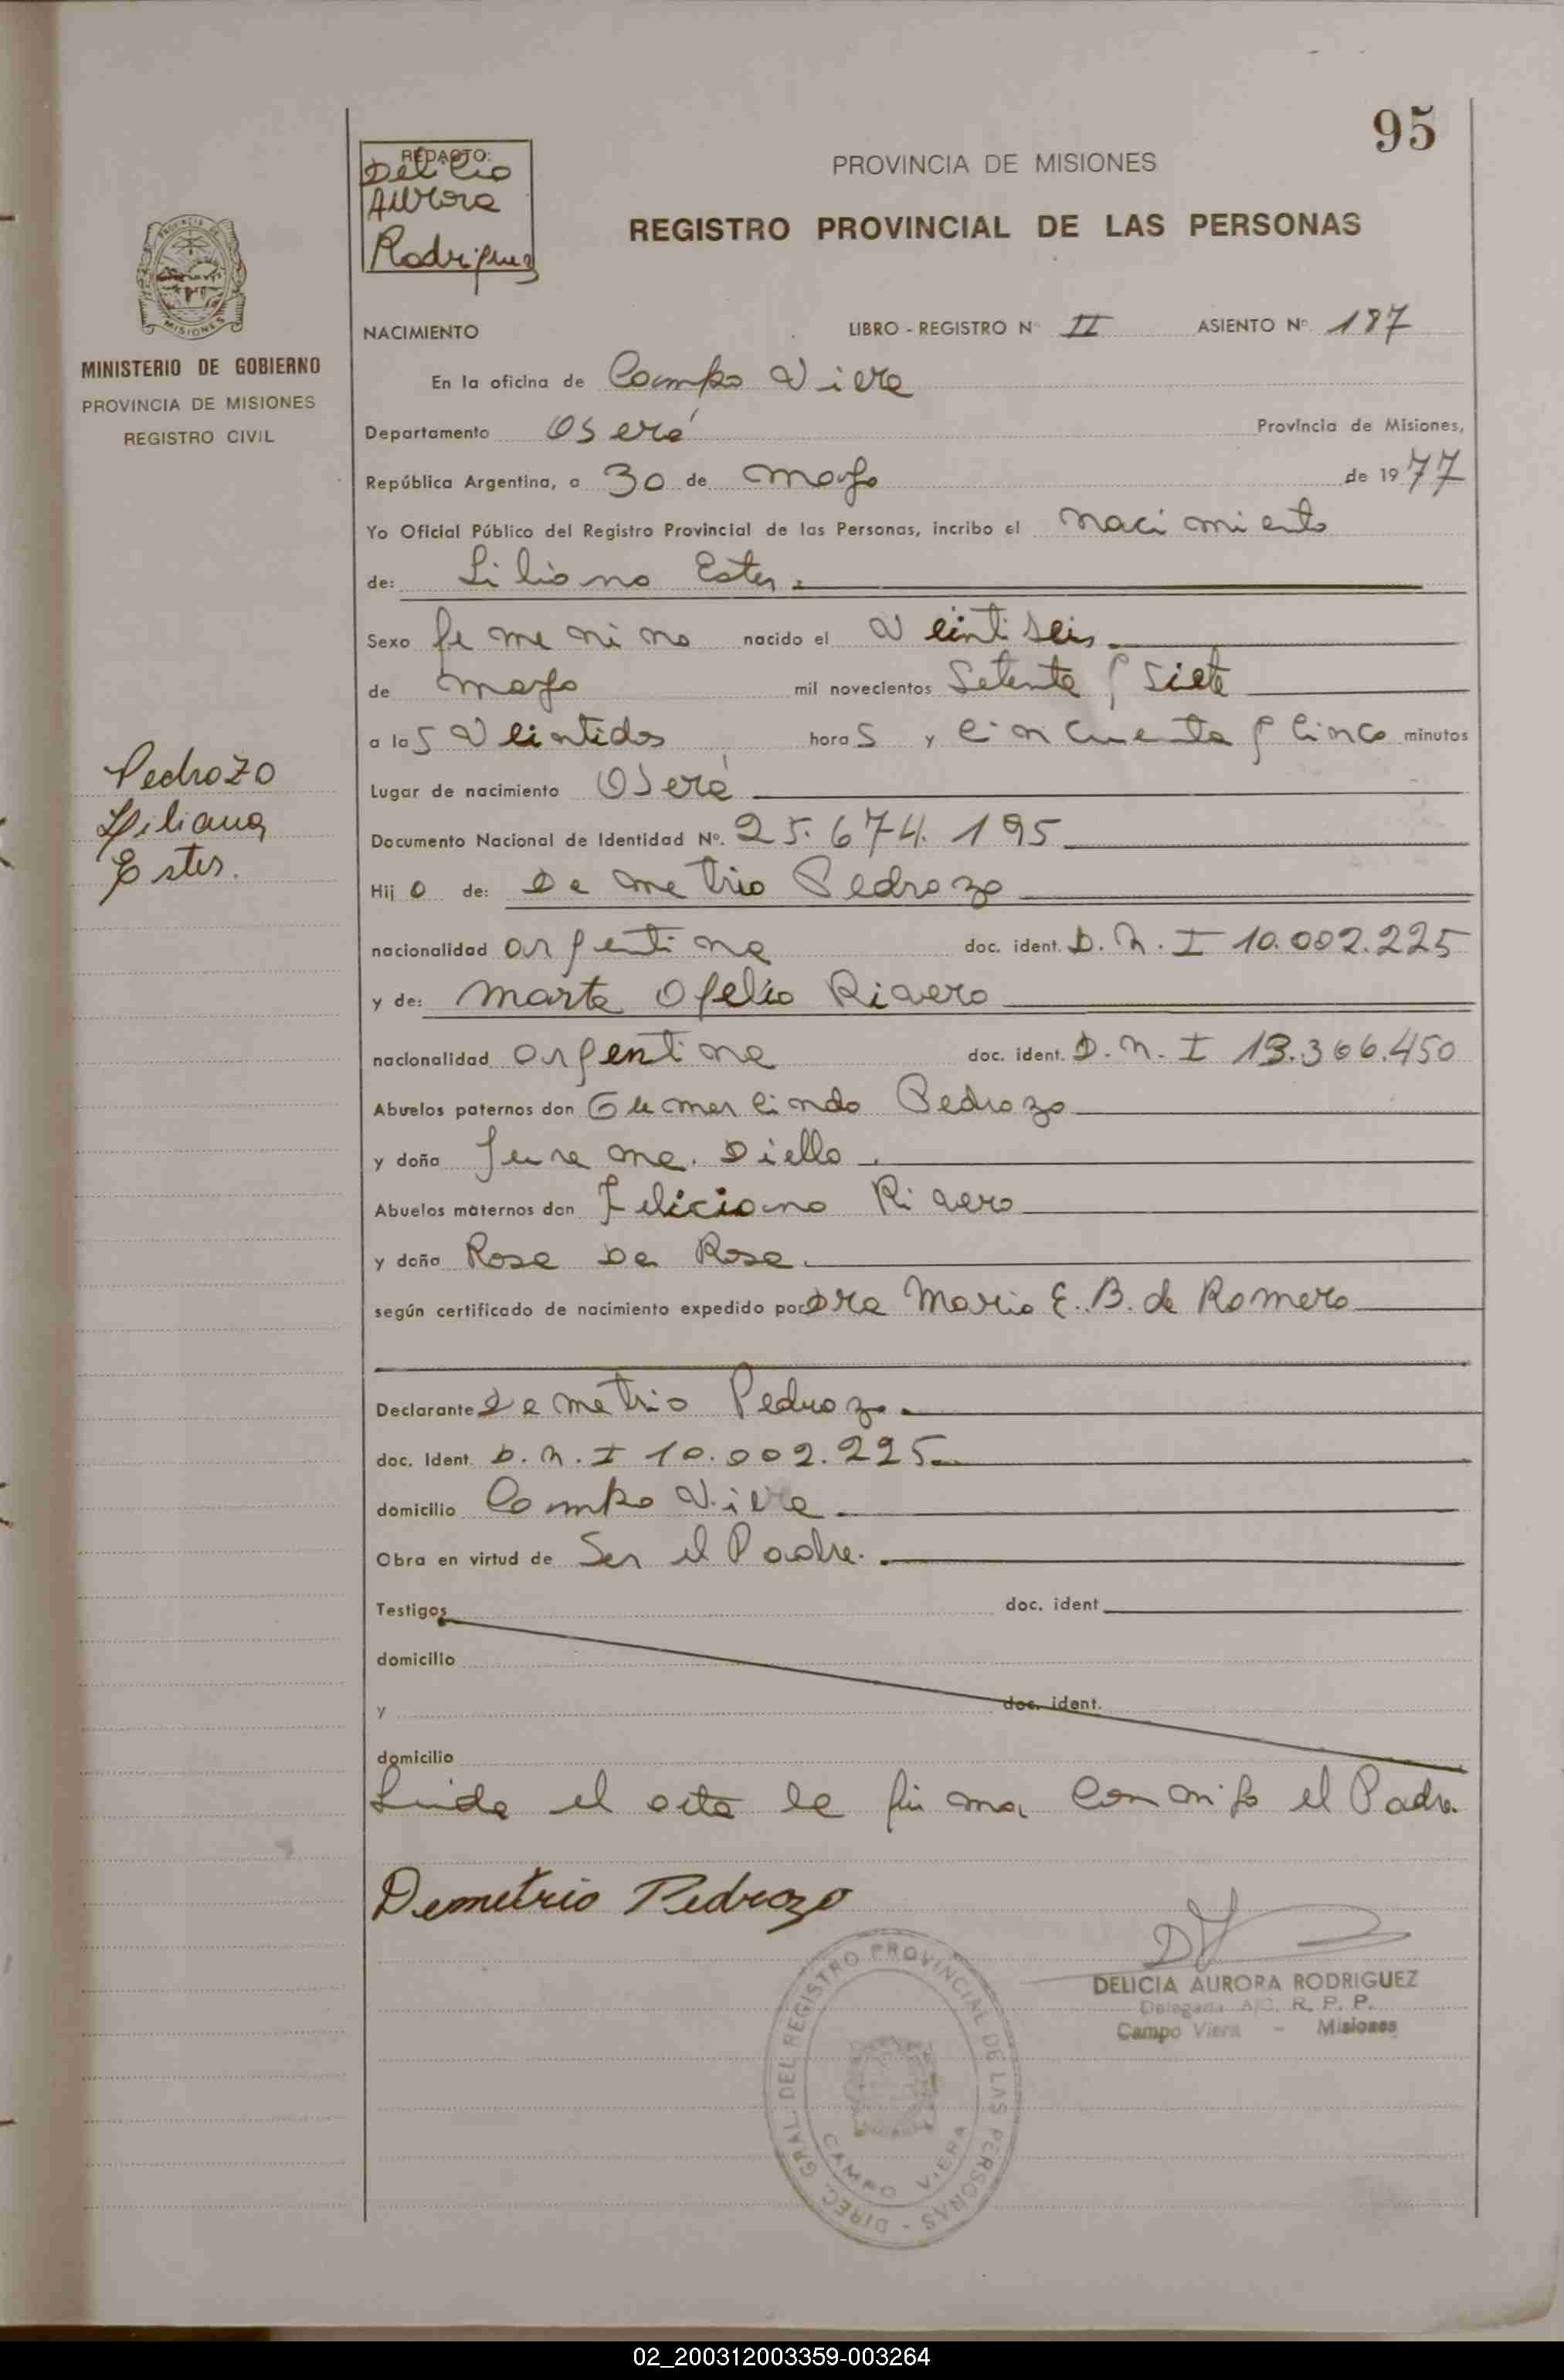 95
REDACTO:
Delicia
Aurora
Rodriguez
PROVINCIA DE MISIONES
REGISTRO PROVINCIAL DE LAS PERSONAS
MISIONES
MINISTERIO DE GOBIERNO
PROVINCIA DE MISIONES
REGISTRO CIVIL
NACIMIENTO LIBRO - REGISTRO Nº II ASIENTO Nº 187
En la oficina de Campo Viera
Departamento Oberá Provincia de Misiones,
República Argentina, a 30 de mayo de 1977
Yo Oficial Público del Registro Provincial de las Personas, incribo el nacimiento
de: Liliana Ester
Sexo femenino nacido el Veintiseis
de mayo mil novecientos Setenta y Siete
a las Veintidos horas y Cincuenta y Cinco minutos
Pedrozo
Liliana
Ester.
Lugar de nacimiento Oberá
Documento Nacional de Identidad Nº. 25.674.195
Hijo de: Demetrio Pedrozo
nacionalidad argentina doc. ident. D.N.I 10.002.225
y de: Marta Ofelia Rivero
nacionalidad argentina doc. ident. D.N.I 13.366.450
Abuelos paternos don Gumercindo Pedrozo
y doña Diello
Abuelos maternos don Feliciano Rivero
y doña Rosa Da Rosa
según certificado de nacimiento expedido por Dra Maria E. B. de Romero
Declarante Demetrio Pedrozo
doc. Ident. D.N.I 10.002.225
domicilio Campo Viera
Obra en virtud de Ser el Padre.
Testigos doc. ident
domicilio
y doc. ident.
domicilio
Leida el acta la firma conmigo el Padre
Demetrio Pedrozo
DELICIA AURORA RODRIGUEZ
Delegada A/C. R. P. P.
Campo Viera - Misiones
DIREC. GRAL. DEL REGISTRO PROVINCIAL DE LAS PERSONAS -
CAMPO VIERA
02_200312003359-003264